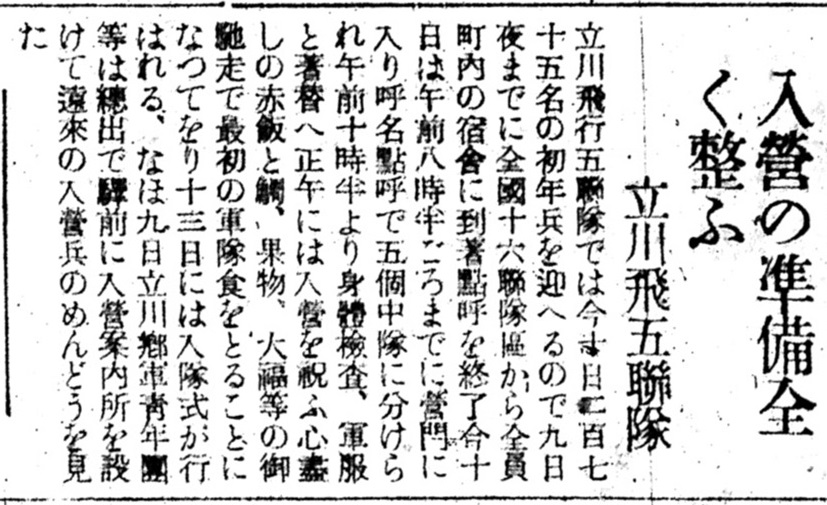 入營の準備全
く整ふ
立川飛五聯隊
立川飛行五聯隊では今十日二百七
十五名の初年兵を迎へるので九日
夜までに全國十六聯隊區から全員
町内の宿舍に到著點呼を終了合十
日は午前八時半ごろまでに營門に
入り呼名點呼で五個中隊に分けら
れ午前十時半より身體檢査、軍服
と著替へ正午には入營を祝ふ心盡
しの赤飯と鯛、果物、大福等の御
馳走で最初の軍隊食をとることに
なつてをり十三日には入隊式が行
はれる、なほ九日立川鄕軍靑年團
等は總出で驛前に入營案内所を設
けて遠來の入營兵のめんどうを見
た